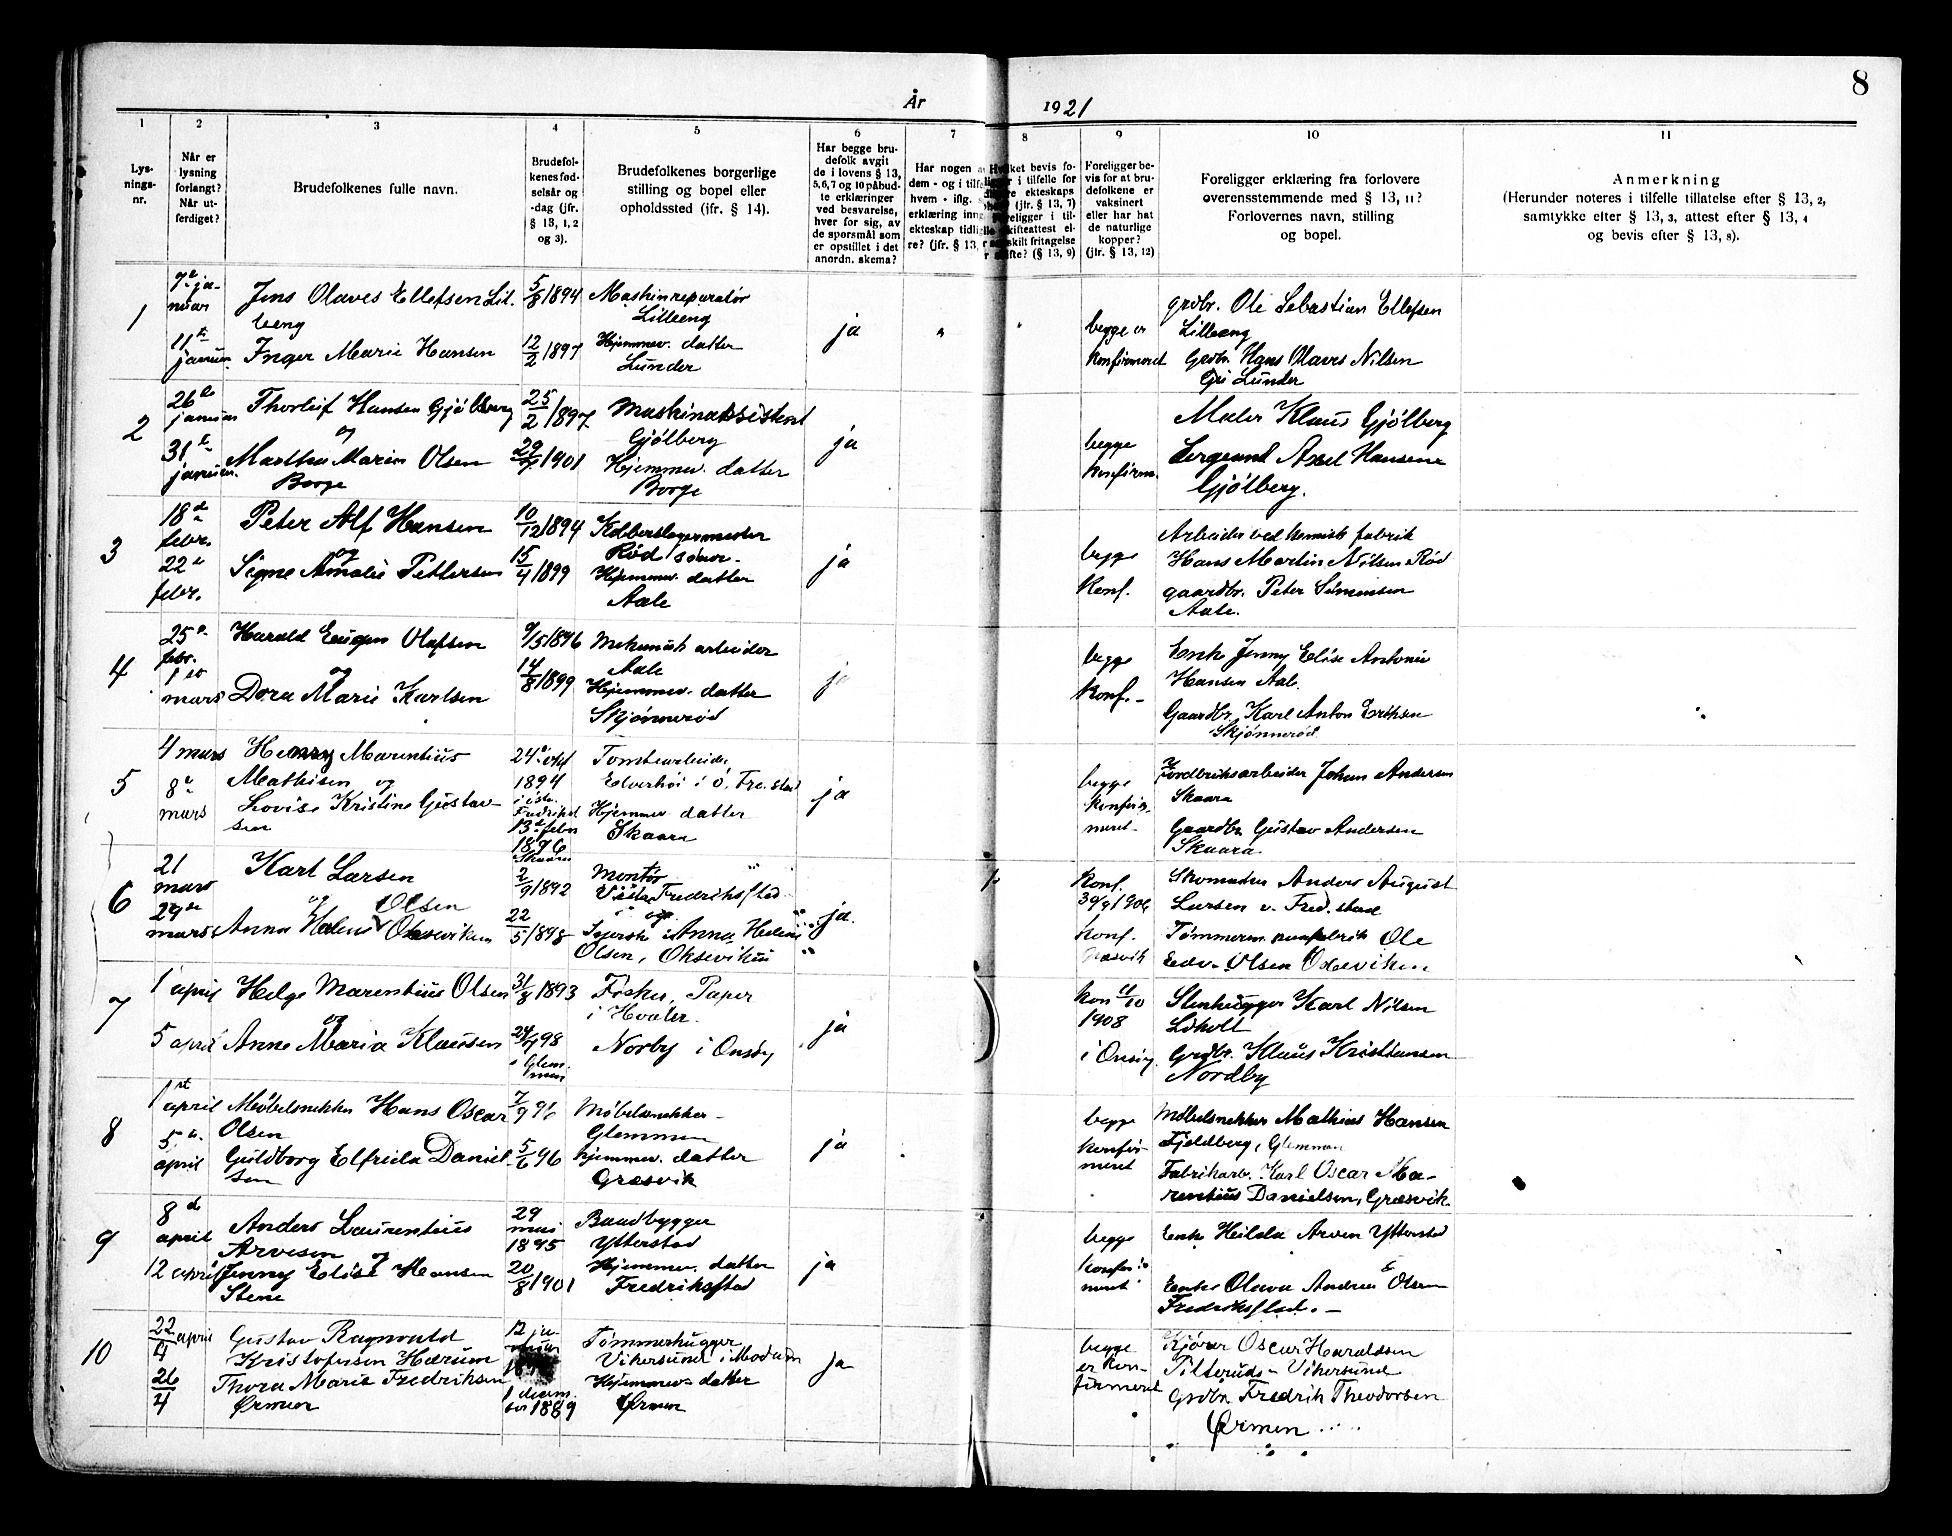 8
År 1921
1 2 3 4 5 6 7 8 9 10 11
Lys-
nings-
nr.
Når er
lysning
forlangt?
Når ut-
ferdiget?
Brudefolkenes fulle navn.
Brudefol-
kenes fød-
selsår og
-dag (jfr.
§ 13, 1, 2
og 3).
Brudefolkenes borgerlige
stilling og bopel eller
opholdssted (ifr. § 14).
Har begge bru-
defolk avgit
de i lovens § 13,
5,6,7 og 10 påbud-
te erklæringer
ved besvarelse,
hver for sig, av
de spørsmål som
er opstillet i det
anordn. skema?
Har nogen
dem - og i
hvem - iflg.
erklæring
ekteskap
re? (jfr. § 13,
bevis fo-
i tilfelle for
ekteskaps
(jfr. § 13, 7)
i til-
skifteattest el-
fritagelse
(§ 13, 9)
Foreligger be-
vis for at bru-
defolkene er
vaksinert
eller har hat
de naturlige
kopper?
(jfr. § 13, 12)
Foreligger erklæring fra forlovere
overensstemmende med § 13, 11?
Forlovernes navn, stilling
og bopel.
Anmerkning
(Herunder noteres i tilfelle tillatelse efter § 13, 2,
samtykke efter § 13, 3, attest efter § 13, 4
og bevis efter § 13, 8).
1
7de ja-
nuar
11te
januar
Jens Olaves Ellefsen Lil-
leeng
Inger Marie Hansen
5/8 1894
12/2 1897
Maskinreparatør
Lilleeng
Hjemmev. datter
Lunder
ja
begge er
konfirmeret
grdbr. Ole Sebastian Ellefsen
Lilleeng
Grdbr. Hans Olaves Nilsen
Lunder
2
26de
januar
31te
januar
Thorleif Hansen Gjølberg
og
Martha Marie Olsen
Borge
25/2 1897
1901
Maskinassistent
Gjølberg
Hjemmev. datter
Borge
ja
begge
konfirm.
Maler Klaus Gjølberg
Sergeant Axel Hansen
Gjølberg.
3
18de
febr.
22de
febr.
Peter Alf Hansen
og
Signe Amalie Pettersen
10/12 1894
15/4 1899
Kobberslagermester
Rød
Hjemmev. datter
Aale
ja
begge
Konf.
Arbeider ved kemisk fabrik
Hans Martin Nilsen Rød
gaardbr. Peter Simensen
Aale.
4
25de
febr.
1ste
mars
Harald Eugen Olafsen
og
Dora Marie Karlsen
9/5 1896
14/8 1899
Mekanisk arbeider
Aale
Hjemmev. datter
Skjønnerød
ja
begge
Konf.
Enke Jenny Elise Antonie
Hansen Aale.
Gaardbr. Karl Anton Eriksen
Skjønnerød
5
4 mars
8de
mars
Henry Marentius
Mathisen og
Lovise Kristine Gustav-
sen
24de
1894
Fredrikst
13de febr
1896
Skaara
Tomtearbeider
i ø. Fre.stad
Hjemmev datter
Skaara
ja
begge
konfir-
meret
Johan Andersen
Skaara
Gaardbr. Gustav Andersen
Skaara.
6
21
mars
29de
mars
Karl Larsen
og Olsen
Anna Helene Okseviken
2/9 1892
22/5 1898
Montør
Vestre Fredriksstad
Syerske Anna Helene
Olsen, Okseviken
ja.
Konf.
30/9 1906
Konf.
Græsvik
Skomaker Anders August
Larsen v. Fred.stad
Tømmerm. Ole
Edv. Olsen Oxeviken
7
1 april
5 april
Helge Marentius Olsen
og
Anne Maria Klausen
31/8 1893
98
i Glem-
men
Fisker, Paper
i Hvaler.
Norby i Onsøy
ja
1908
i Onsøy
Stenhugger Karl Nilsen
Grdbr. Klaus Kristiansen
Nordby
8
1st
april
5te
april
Møbelsnekker Hans Oscar
Olsen
Guldborg Elfrida Daniel-
sen
5/6 96
Møbelsnekker
Glemmen
hjemmev. datter
Græsvik
ja
begge
konfir-
meret
Møbelsnekker Mathias Hansen
Fjeldberg, Glemmen
Fabrikarb. Karl Oscar Ma-
rentius Danielsen, Græsvik.
9
8de
april
12 april
Anders Laurentius
Arvesen og
Jenny Elise Hansen
Stene
29
mai
1895
20/8 1901
Baadbygger
Ytterstad
Hjemmev. datter
Fredriksstad
ja
begge
konfir-
meret
Enke Hilda Arvesen Ytterstad
Enke Olava Andrea E. Olsen
Fredriksstad.
10
22/4 april
26/4
Gustav Ragnvald
Kristofersen Hærum
Thora Marie Fredriksen
Ørmen
12 ja-
nuar
1 decem-
ber 1889
Tømmerhugger
Vikersund i Modum
Hjemmev. datter
Ørmen
ja
begge
er kon-
firmeret
Kjører Oscar Haraldsen
Vikersund
Grdbr. Fredrik Theodorsen
Ørmen